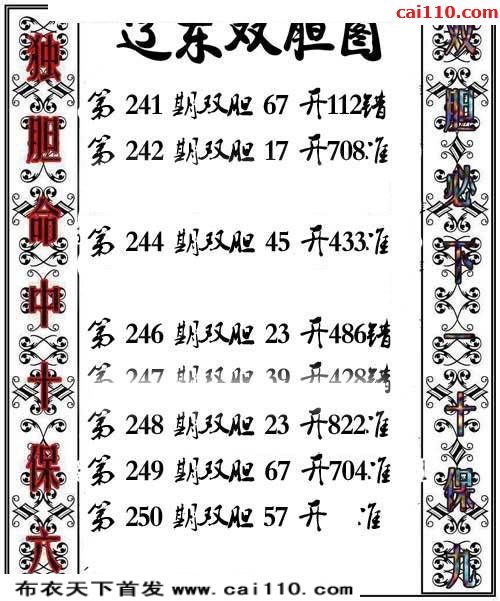 cai110.com
辽东双胆图
独胆命中十保六
第 241 期双胆 67 开112错
第 242 期双胆 17 开708准
第 244 期双胆 45 开433准
第 246 期双胆 23 开486错
第 247 期双胆 39 开428错
第 248 期双胆 23 开822准
第 249 期双胆 67 开704准
第 250 期双胆 57 开 准
双胆必下一十保九
布衣天下首发 www.cai110.com